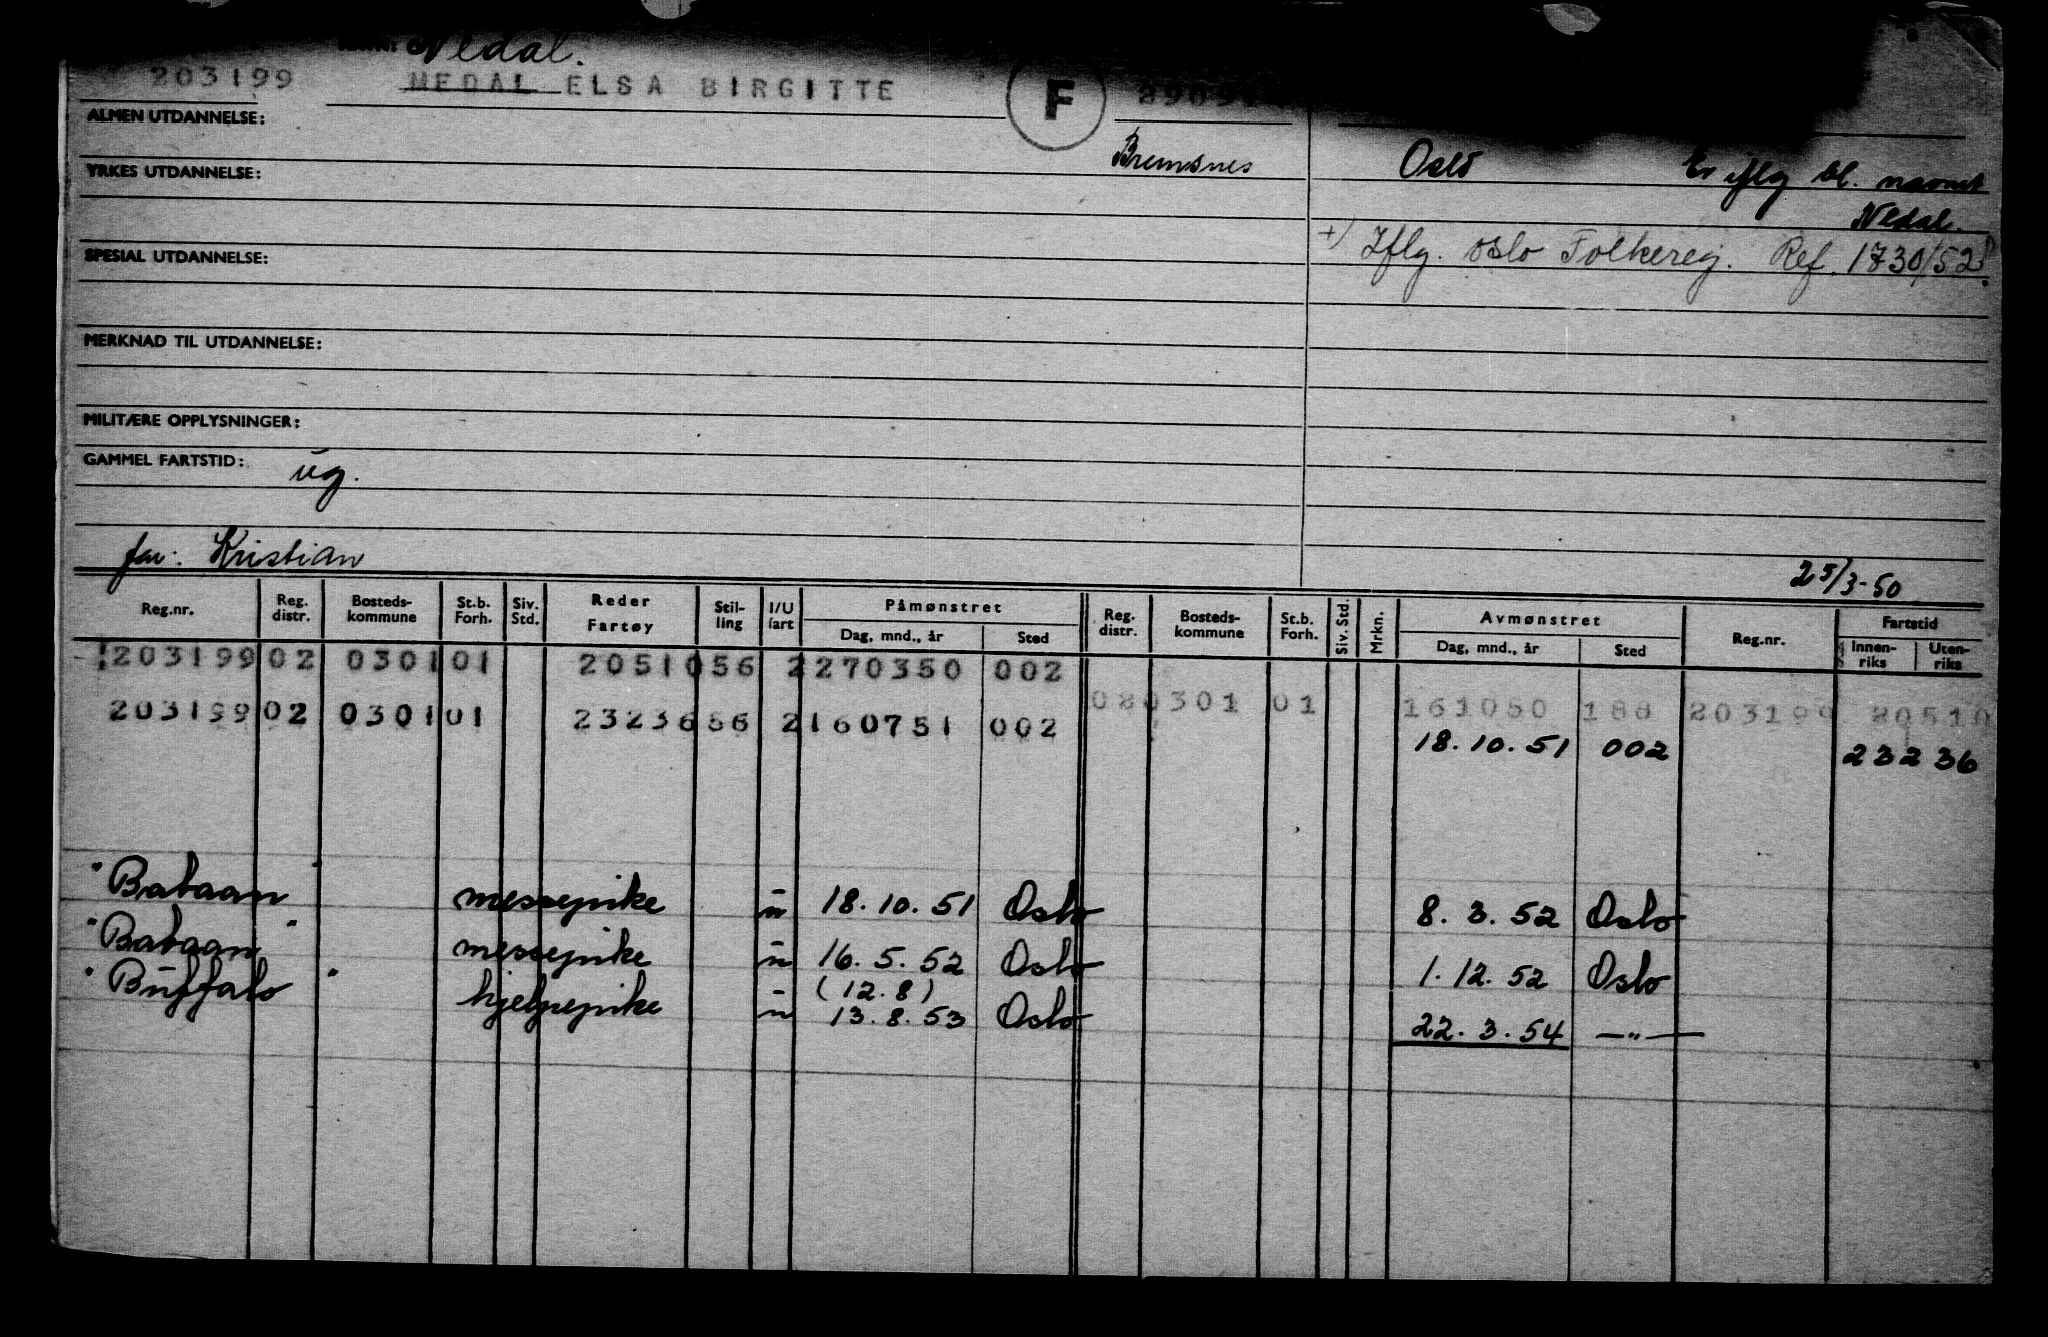 Nedal.
203199 MEDAL ELSA BIRGITTE F
ALMEN UTDANNELSE:
Bremsnes Oslo Er iflg bl. navnet
YRKES UTDANNELSE:
Nedal.
+) Iflg. Oslo Folkereg. Ref. 1730/52
SPESIAL UTDANNELSE:
MERKNAD TIL UTDANNELSE:
MILITÆRE OPPLYSNINGER:
GAMMEL FARTSTID: ug.
far: Kristian
25/3-50
Reg.nr. Reg. distr. Bosteds-kommune St.b. Forh. Siv. Std. Reder Fartøy Stil-ling I/U fart Påmønstret Dag, mnd., år Sted Reg. distr. Bosteds-kommune St.b. Forh. Siv. Std. Mrkn. Avmønstret Dag, mnd., år Sted Reg.nr. Fartstid Innen-riks Uten-riks
203199 02 0301 01 20510 56 2 270350 002
080301 01 161050 188 203199 20510
203199 02 0301 01 23236 56 2 160751 002
18.10.51 002 23236
"Bataan" messepike u 18.10.51 Oslo 8.3.52 Oslo
"Bataan" messepike u 16.5.52 Oslo 1.12.52 Oslo
(12.8)
"Buffalo" hjelpepike u 13.8.53 Oslo 22.3.54 —"—